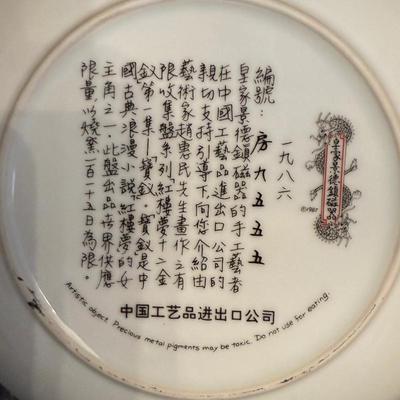 皇家景德鎮磁器
©1987
一九八六
編號：房九五五五
皇家景德鎮磁器的手工藝者
在中國工藝品進出口公司的
親切支持引導下,向您介紹由
藝術家趙惠民先生畫作之有
限收集盤系列「紅樓夢十二金
釵」第一集—「寶釵」。寶釵是中
國古典浪漫小說「紅樓夢」的女
主角之一,此盤出品世界供應
限量,以燒窯一百一十五日為限。
中国工艺品进出口公司
Artistic object. Precious metal pigments may be toxic. Do not use for eating.